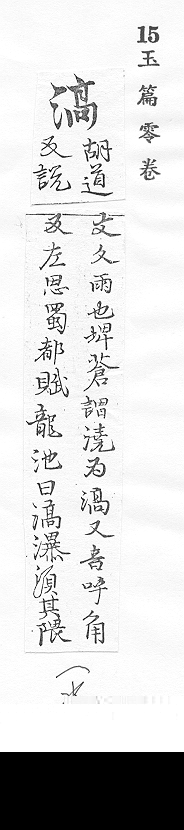 15玉篇零卷
滈
胡道
反說
文久雨也埤蒼謂澆为滈又音呼角
反左思蜀都賦龍池曰滈瀑濆其隈